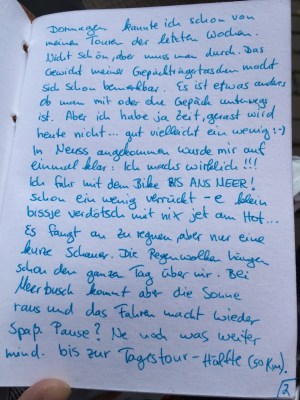 Dormagen kannte ich schon von
meinen Touren der letzten Wochen.
Nicht schön, aber muss man durch. Das
Gewicht meiner Gepäckträgertaschen macht
sich schon bemerkbar. Es ist etwas anders
ob man mit oder ohne Gepäck unterwegs
ist. Aber ich habe ja Zeit, gerast wird
heute nicht... gut vielleicht ein wenig :-)
In Neuss angekommen wurde mir auf
einmal klar: Ich machs wirklich!!!
Ich fahr mit dem Bike BIS ANS MEER!
schon ein wenig verrückt - e klein
bissje verdötsch mit nix jet am Hot...
Es fängt an zu regnen, aber nur eine
kurze Schauer. Die Regenwolken hängen
schon den ganzen Tag über mir. Bei
Meerbusch kommt aber die Sonne
raus und das Fahren macht wieder
Spaß. Pause? Ne noch was weiter
mind. bis zur Tagestour-Hälfte (50 Km).
2